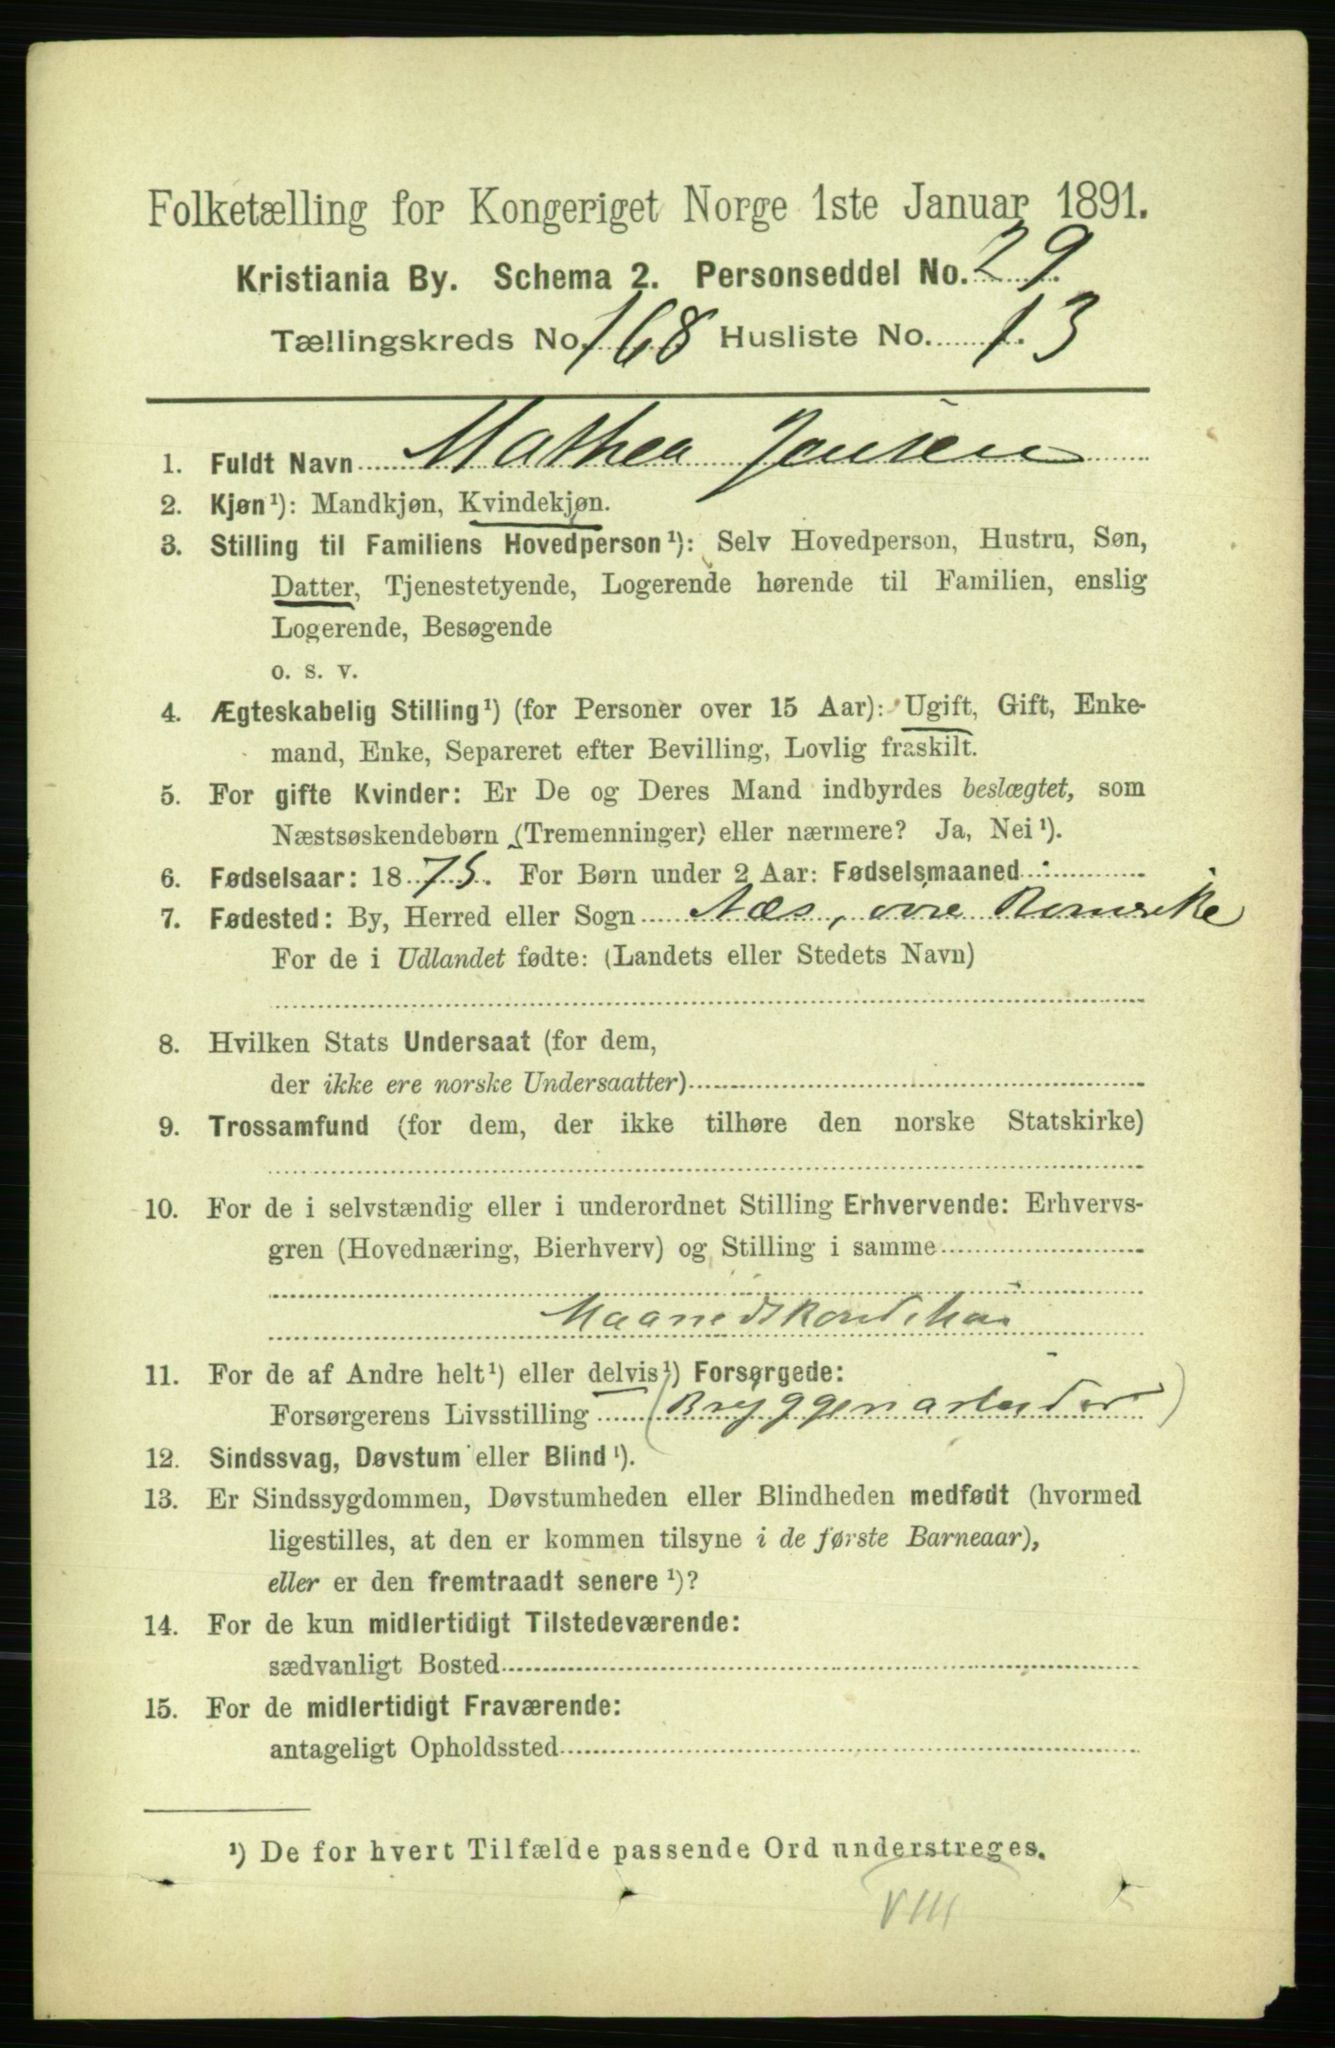 Folketælling for Kongeriget Norge 1ste Januar 1891.
Kristiania By. Schema 2. Personseddel No. 29.
Tællingskreds No. 168 Husliste No. 13
1. Fuldt Navn Mathea Jensen
2. Kjøn¹): Mandkjøn, Kvindekjøn.
3. Stilling til Familiens Hovedperson¹): Selv Hovedperson, Hustru, Søn,
Datter, Tjenestetyende, Logerende hørende til Familien, enslig
Logerende, Besøgende
o. s. v.
4. Ægteskabelig Stilling¹) (for Personer over 15 Aar): Ugift, Gift, Enke-
mand, Enke, Separeret efter Bevilling, Lovlig fraskilt.
5. For gifte Kvinder: Er De og Deres Mand indbyrdes beslægtet, som
Næstsøskendebørn (Tremenninger) eller nærmere? Ja, Nei¹).
6. Fødselsaar: 1875. For Børn under 2 Aar: Fødselsmaaned
7. Fødested: By, Herred eller Sogn Næs, øvre Romerike
For de i Udlandet fødte: (Landets eller Stedets Navn)
8. Hvilken Stats Undersaat (for dem,
der ikke ere norske Undersaatter)
9. Trossamfund (for dem, der ikke tilhøre den norske Statskirke)
10. For de i selvstændig eller i underordnet Stilling Erhvervende: Erhvervs-
gren (Hovednæring, Bierhverv) og Stilling i samme
11. For de af Andre helt¹) eller delvis¹) Forsørgede:
Forsørgerens Livsstilling (Bryggeriarbeider)
12. Sindssvag, Døvstum eller Blind¹).
13. Er Sindssygdommen, Døvstumheden eller Blindheden medfødt (hvormed
ligestilles, at den er kommen tilsyne i de første Barneaar),
eller er den fremtraadt senere¹)?
14. For de kun midlertidigt Tilstedeværende:
sædvanligt Bosted
15. For de midlertidigt Fraværende:
antageligt Opholdssted
¹) De for hvert Tilfælde passende Ord understreges.
VIII